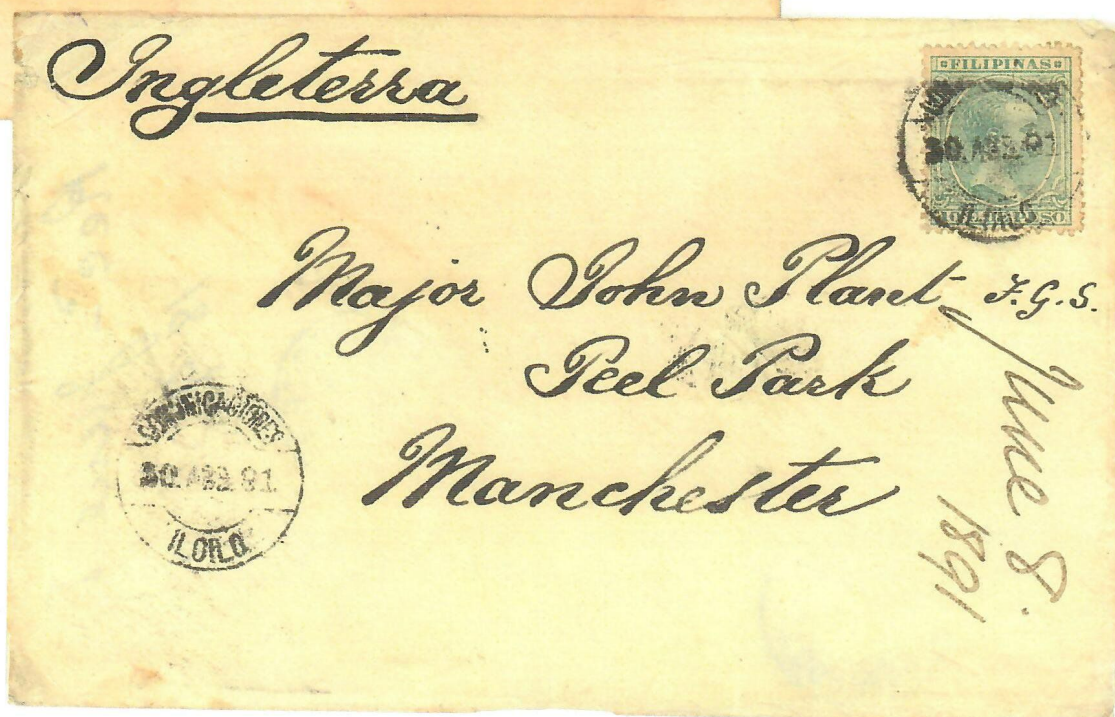 Ingleterra
FILIPINAS
30. ABR. 91
ILOILO
Major John Plant F.G.S.
Peel Park
Manchester
June 8
1891
COMUNICACIONES
30. ABR. 91
ILOILO